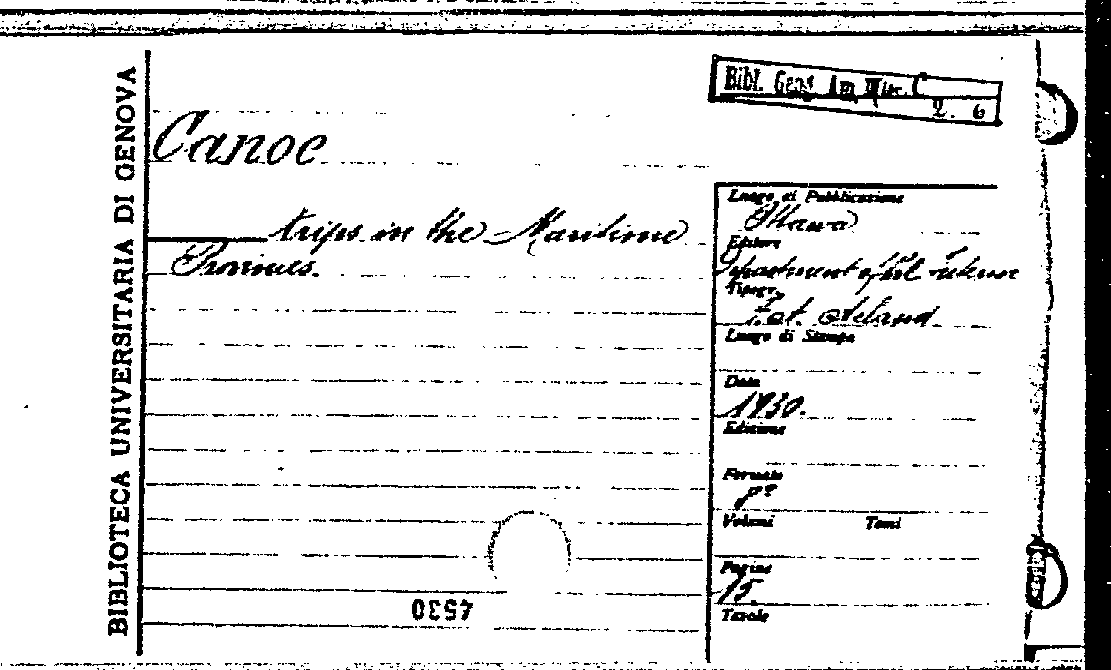 BIBLIOTECA UNIVERSITARIA DI GENOVA
Bibl. Geog. Am
2. 6
Canoe
trips in the Maritime
Provinces.
Luogo di Pubblicazione
Ottawa
Editore
Department of the Interior
Tipogr.
Luogo di Stampa
Data
1930.
Edizione
Formato
8º
Volumi Tomi
Pagine
15.
Tavole
4530